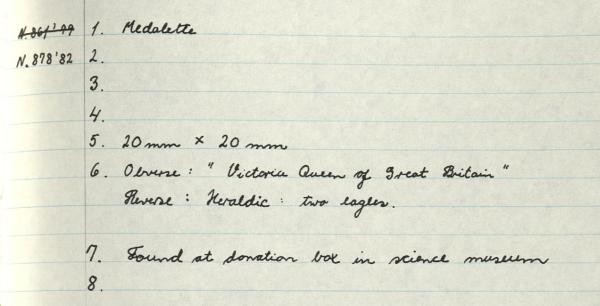 1. Medalette
N. 878'82 2.
3.
4.
5. 20mm × 20mm
6. Obverse : " Victoria Queen of Great Britain "
Reverse : Heraldic : two eagles.
7. Found at donation box in science museum
8.